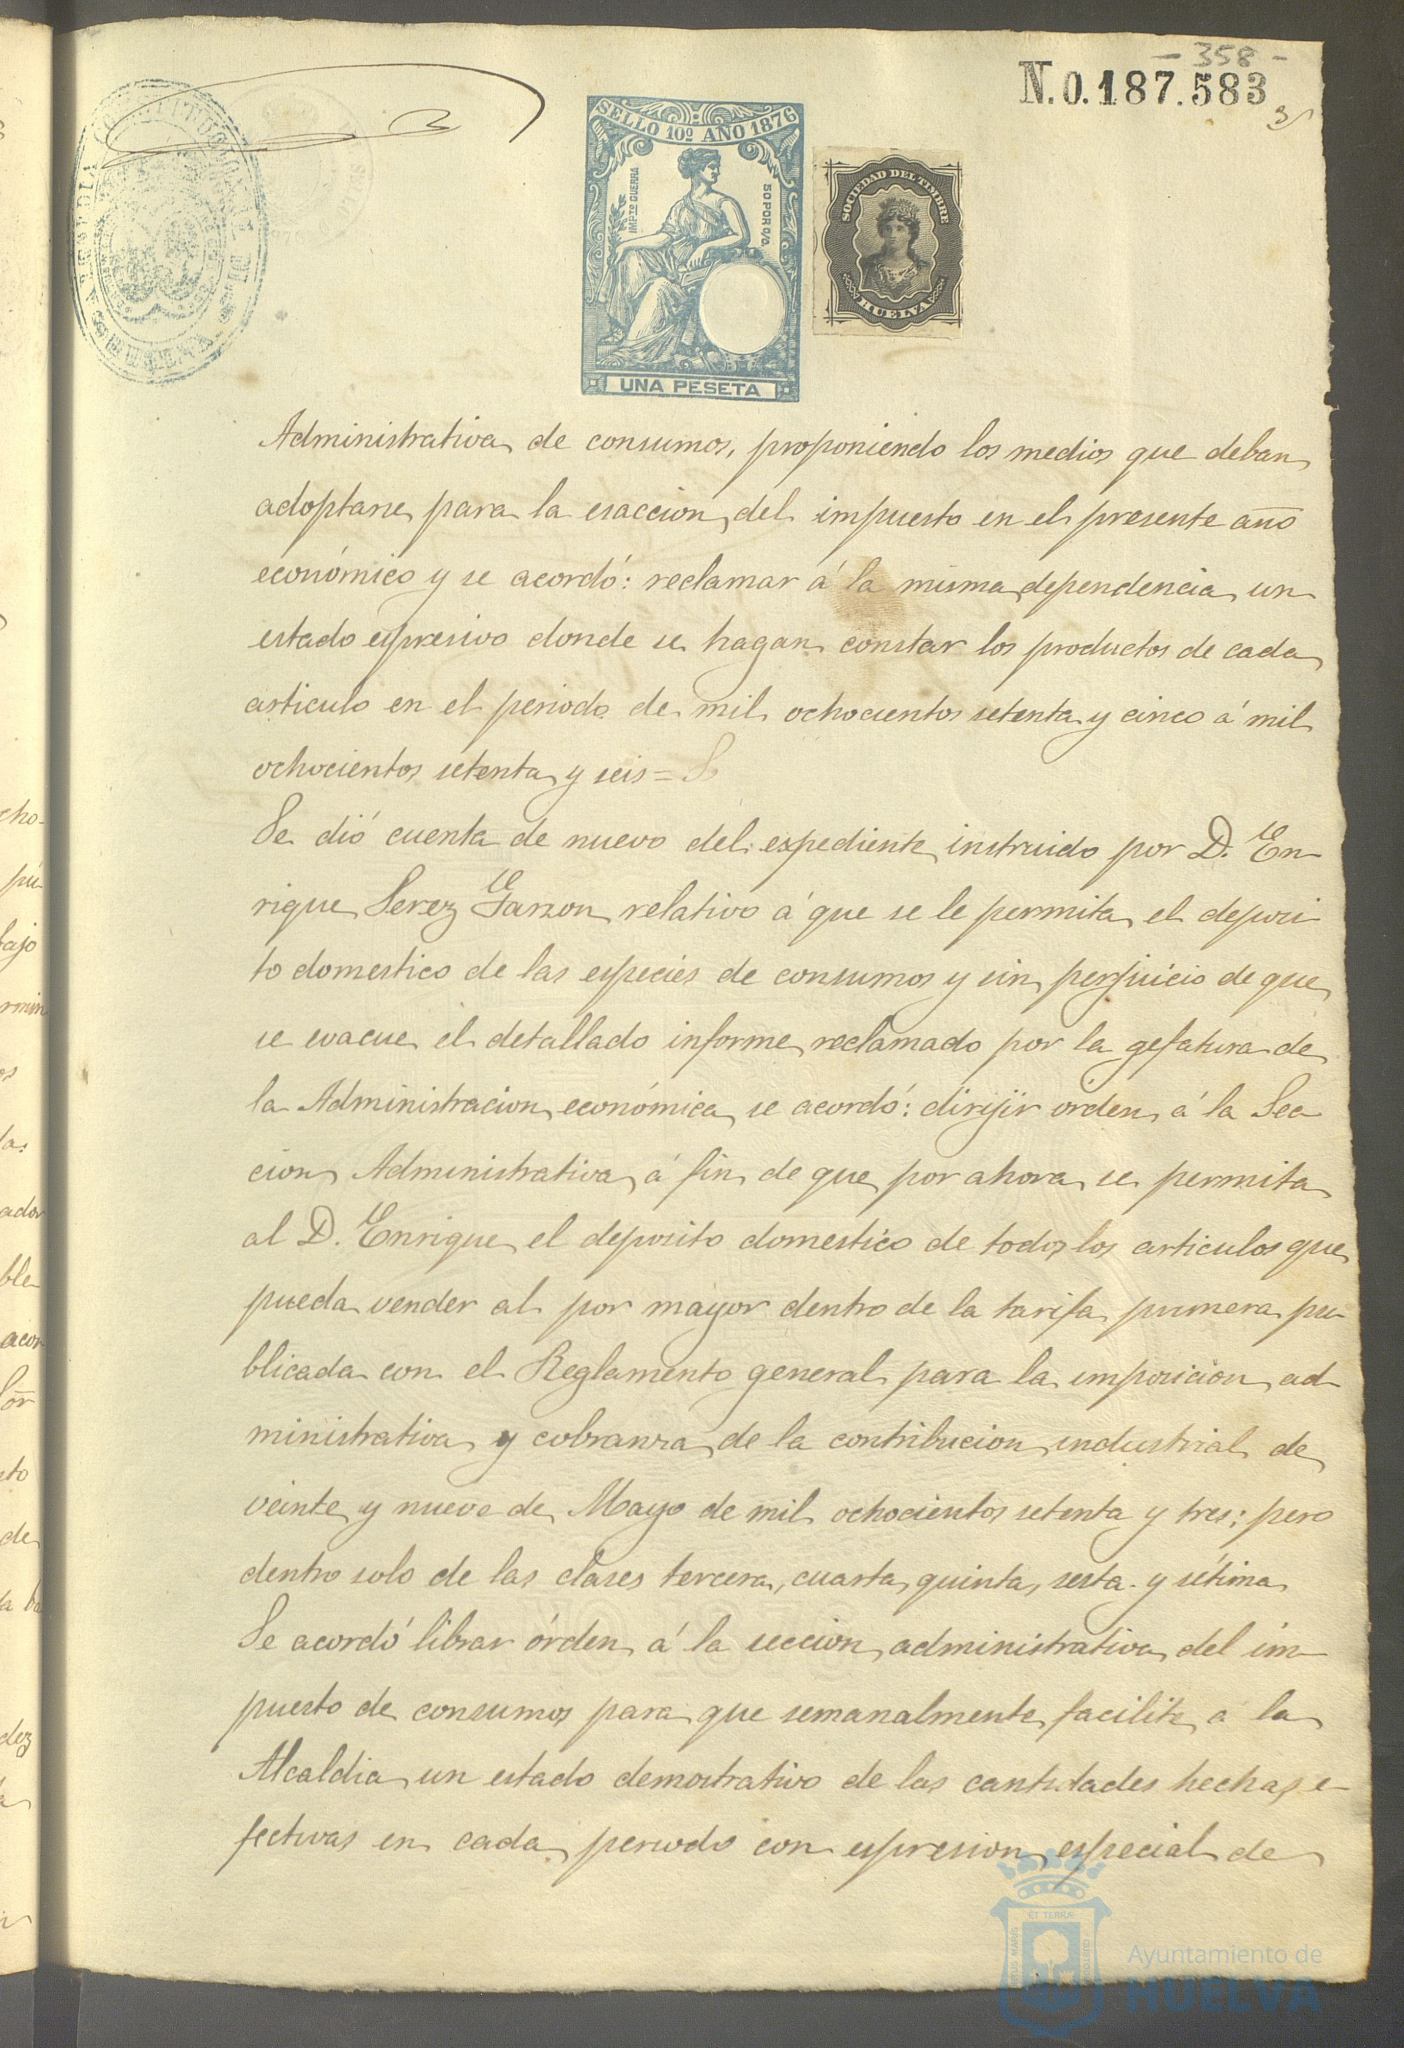 - 358 -
N.0.187.583
SELLO 10º AÑO 1876
IMPTO GUERRA
50 POR 0/0
UNA PESETA
SOCIEDAD DEL TIMBRE
HUELVA
Administrativa de consumos, proponiendo los medios que deban
adoptarse para la esaccion del impuesto en el presente año
económico y se acordó: reclamar á la misma dependencia un
estado espresivo donde se hagan constar los productos de cada
articulo en el periodo de mil ochocientos setenta y cinco á mil
ochocientos setenta y seis =
Se dió cuenta de nuevo del espediente instruido por D. En-
rique Perez Garzon relativo á que se le permita el deposi-
to domestico de las especies de consumos y sin perjuicio de que
se evacue el detallado informe reclamado por la gefatura de
la Administracion económica se acordó: dirijir orden á la Sec-
cion Administrativa á fin de que por ahora se permita
al D. Enrique el deposito domestico de todos los articulos que
pueda vender al por mayor dentro de la tarifa primera pu-
blicada con el Reglamento general para la imposicion ad-
ministrativa y cobranza de la contribucion industrial de
veinte y nueve de Mayo de mil ochocientos setenta y tres; pero
dentro solo de las clases tercera, cuarta, quinta, sesta y sétima
Se acordó librar órden á la seccion administrativa del im-
puesto de consumos para que semanalmente facilite á la
Alcaldia un estado demostrativo de las cantidades hechas e-
fectivas en cada periodo con espresion especial de
Ayuntamiento de
HUELVA